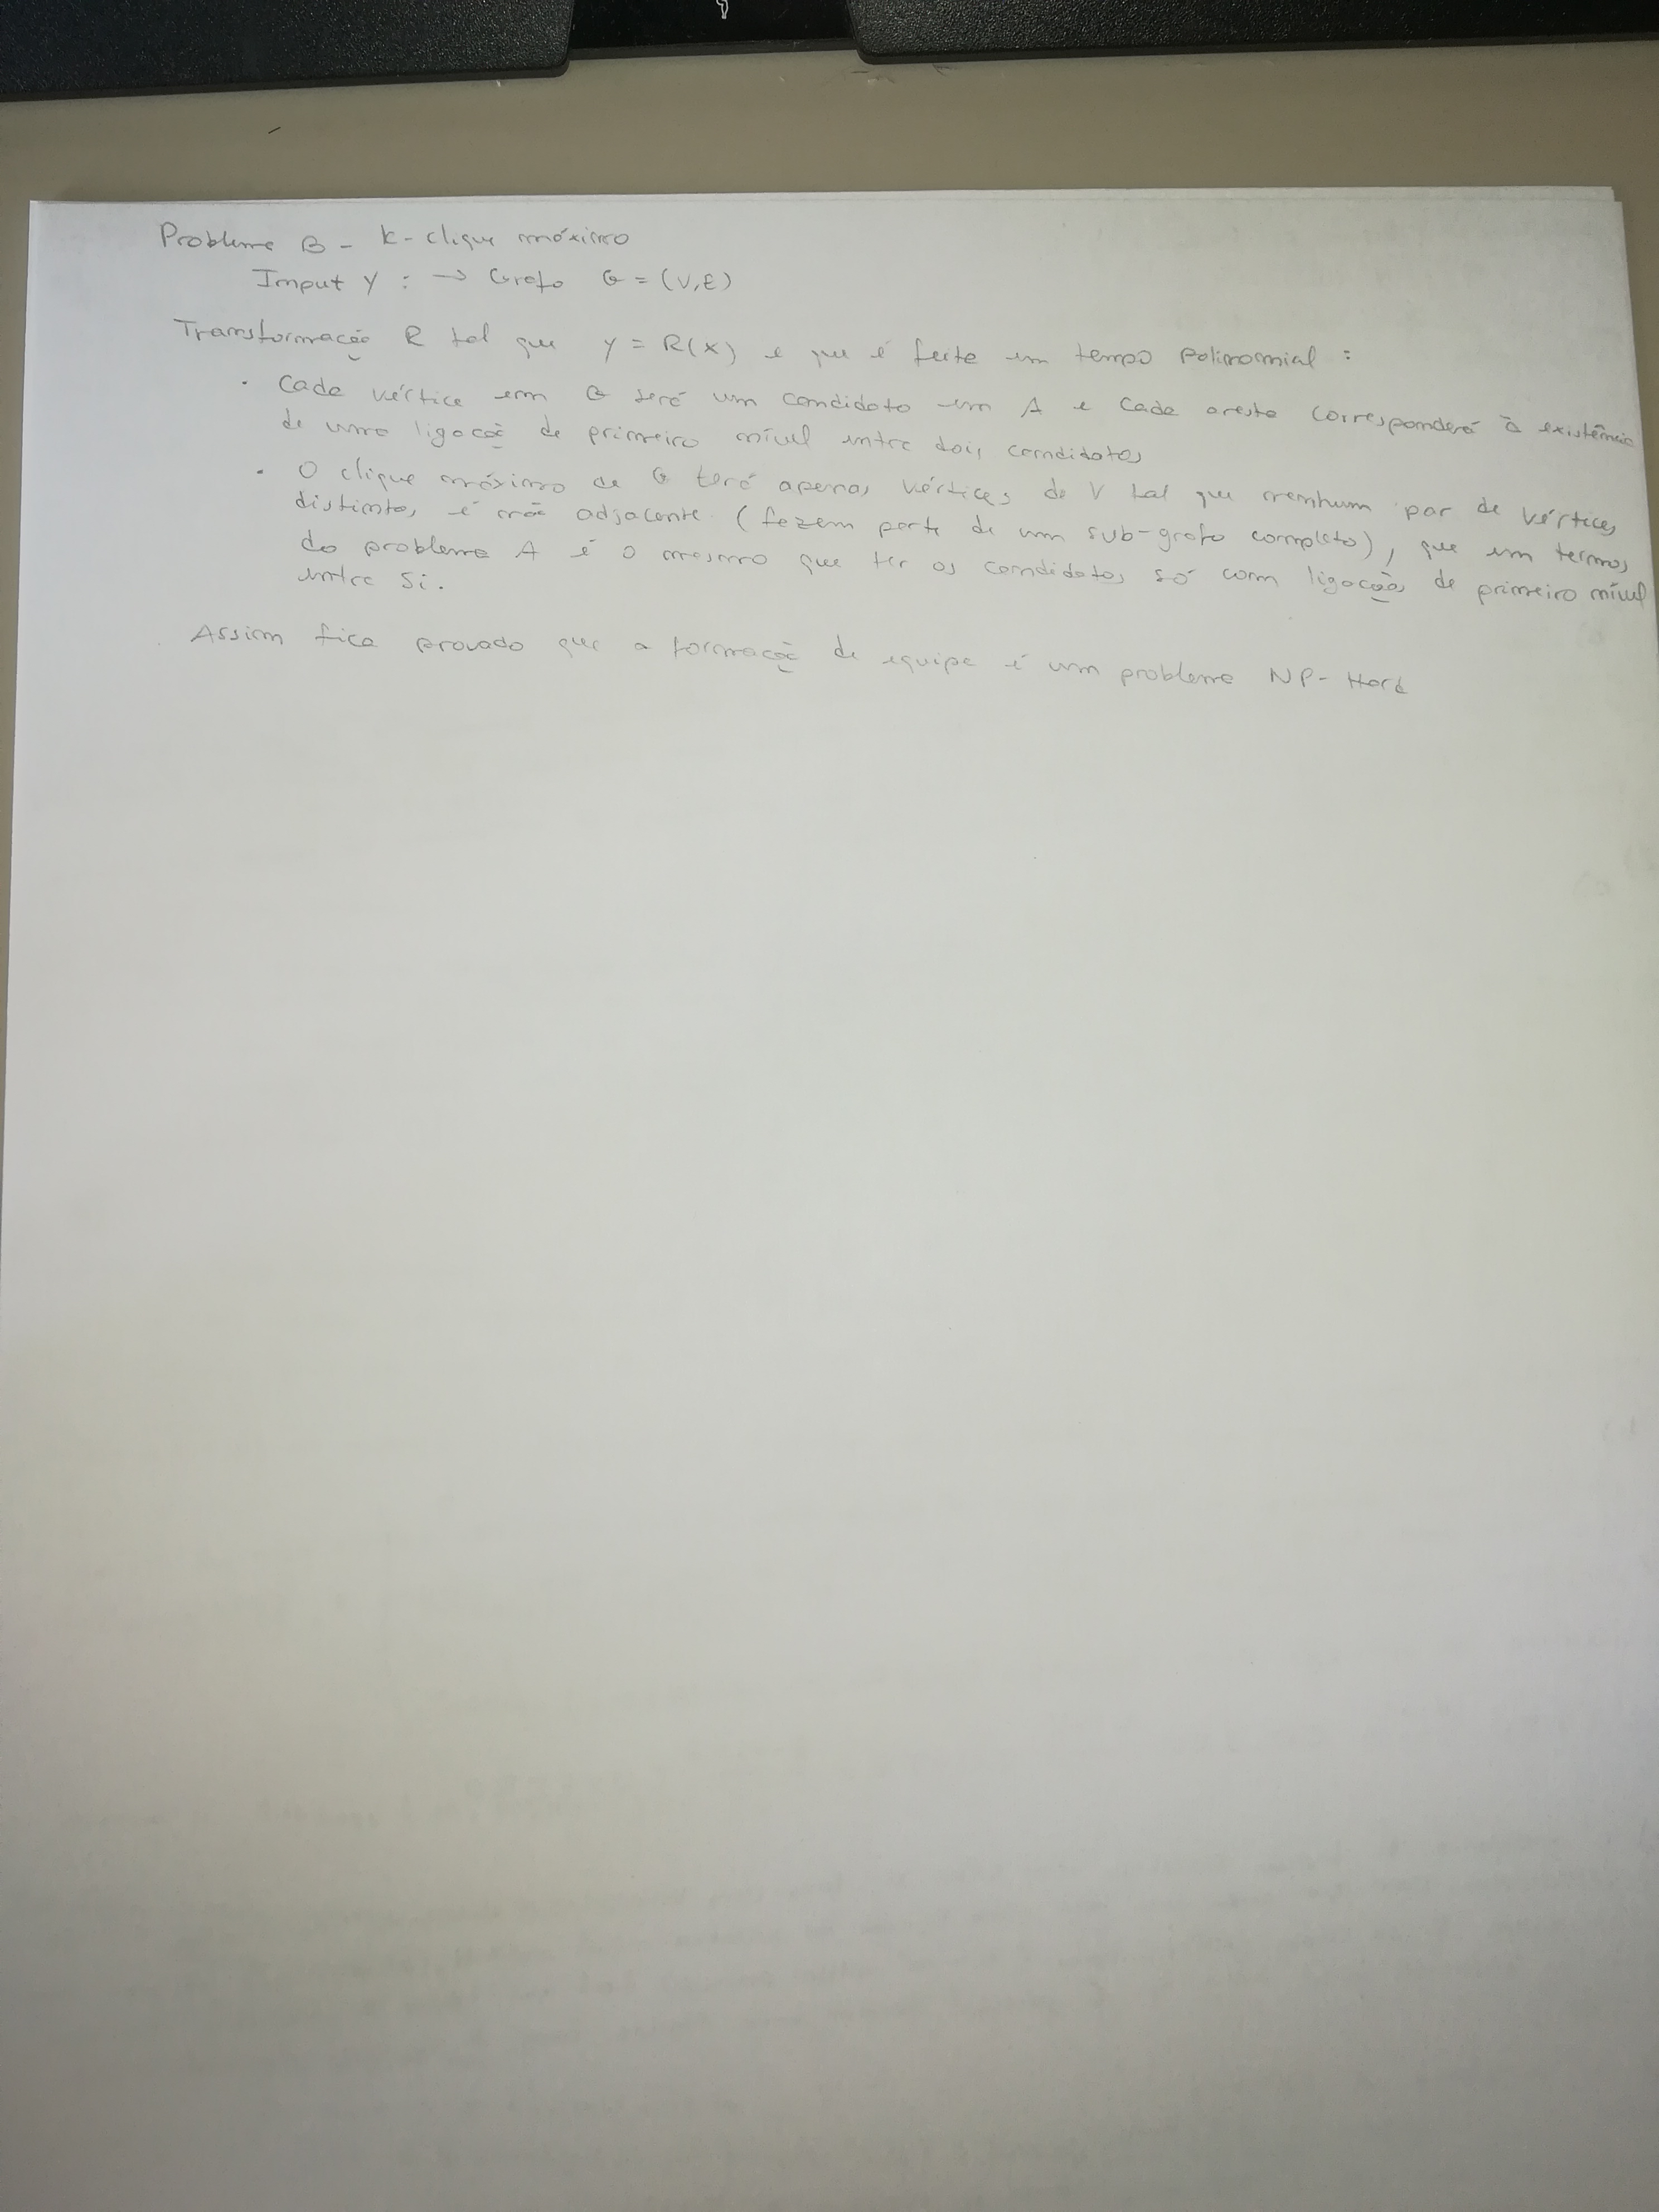 Problema B - K-clique máximo
Input Y : → Grafo G = (V,E)
Transformação R tal que Y = R(X) e que é feita em tempo polinomial :
• Cada vértice em G será um candidato em A e cada aresta corresponderá à existência
de uma ligação de primeiro nível entre dois candidatos
• O clique máximo de G terá apenas vértices de V tal que nenhum par de vértices
distintos é não adjacente (fazem parte de um sub-grafo completo), que em termos
do problema A é o mesmo que ter os candidatos só com ligações de primeiro nível
entre si.
Assim fica provado que a formação de equipa é um problema NP-Hard